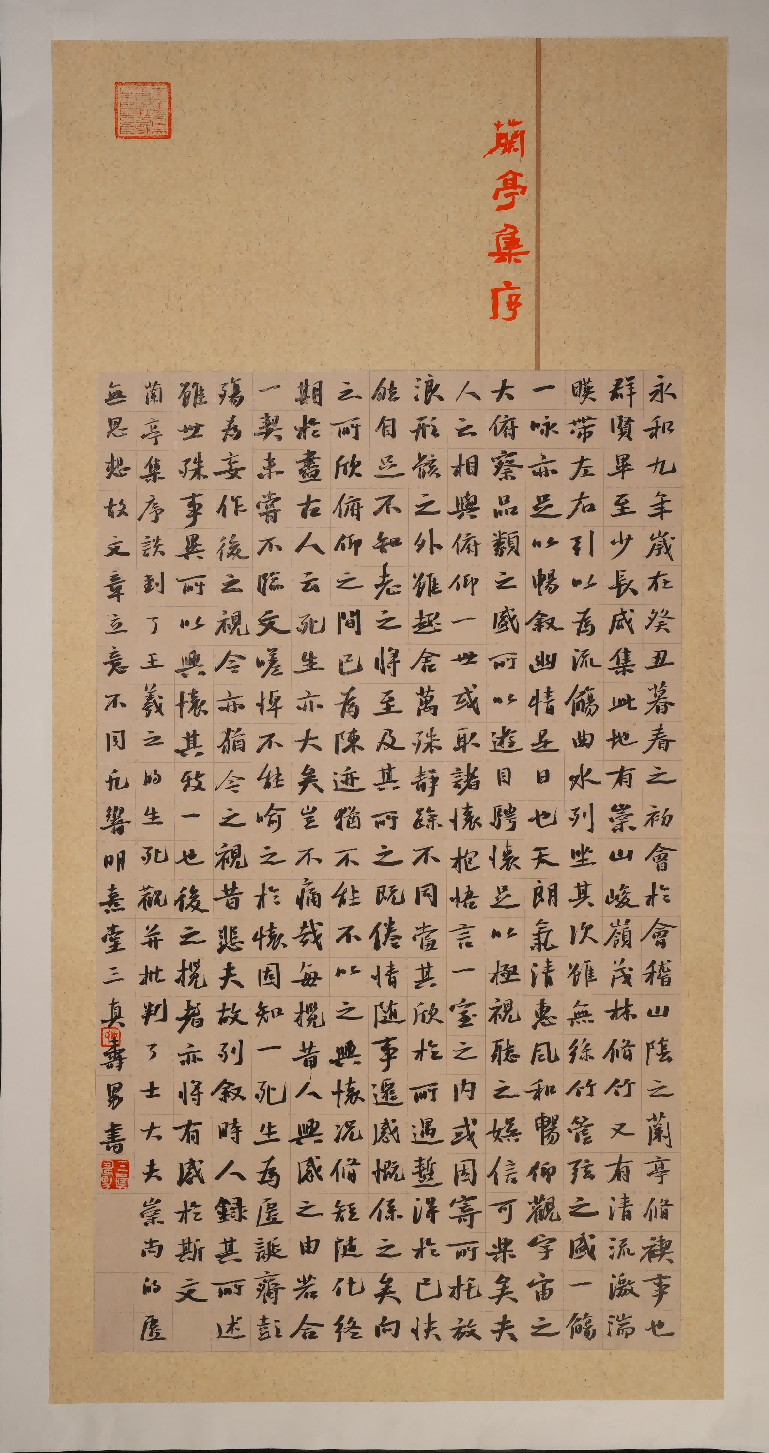 蘭亭集序
永和九年歲在癸丑暮春之初會於會稽山陰之蘭亭脩禊事也
群賢畢至少長咸集此地有崇山峻嶺茂林脩竹又有清流激湍
暎帶左右引以為流觴曲水列坐其次雖無絲竹管弦之盛一觴
一咏亦足以暢叙幽情是日也天朗氣清惠風和暢仰觀宇宙之
大俯察品類之盛所以遊目騁懷足以極視聽之娛信可樂矣夫
人之相與俯仰一世或取諸懷抱悟言一室之內或因寄所托放
浪形骸之外雖趣舍萬殊靜躁不同當其欣於所遇暫得於己快
然自足不知老之將至及其所之既倦情隨事遷感慨係之矣向
之所欣俯仰之間已為陳迹猶不能不以之興懷況脩短隨化終
期於盡古人云死生亦大矣豈不痛哉每攬昔人興感之由若合
一契未嘗不臨文嗟悼不能喻之於懷固知一死生為虛誕齊彭
殤為妄作後之視今亦猶今之視昔悲夫故列叙時人錄其所述
雖世殊事異所以興懷其致一也後之攬者亦將有感於斯文
蘭亭集序談到了王羲之的生死觀并批判了士大夫崇尚的虛
無思想故文章立意不同凡響明熹堂三真壽男書